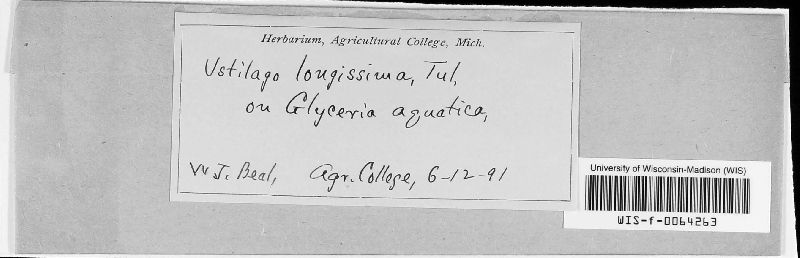 Herbarium, Agricultural College, Mich.
Ustilago longissima, Tul,
on Glyceria aquatica,
W J. Beal, Agr. College, 6-12-91
University of Wisconsin-Madison (WIS)
WIS-f-0064263